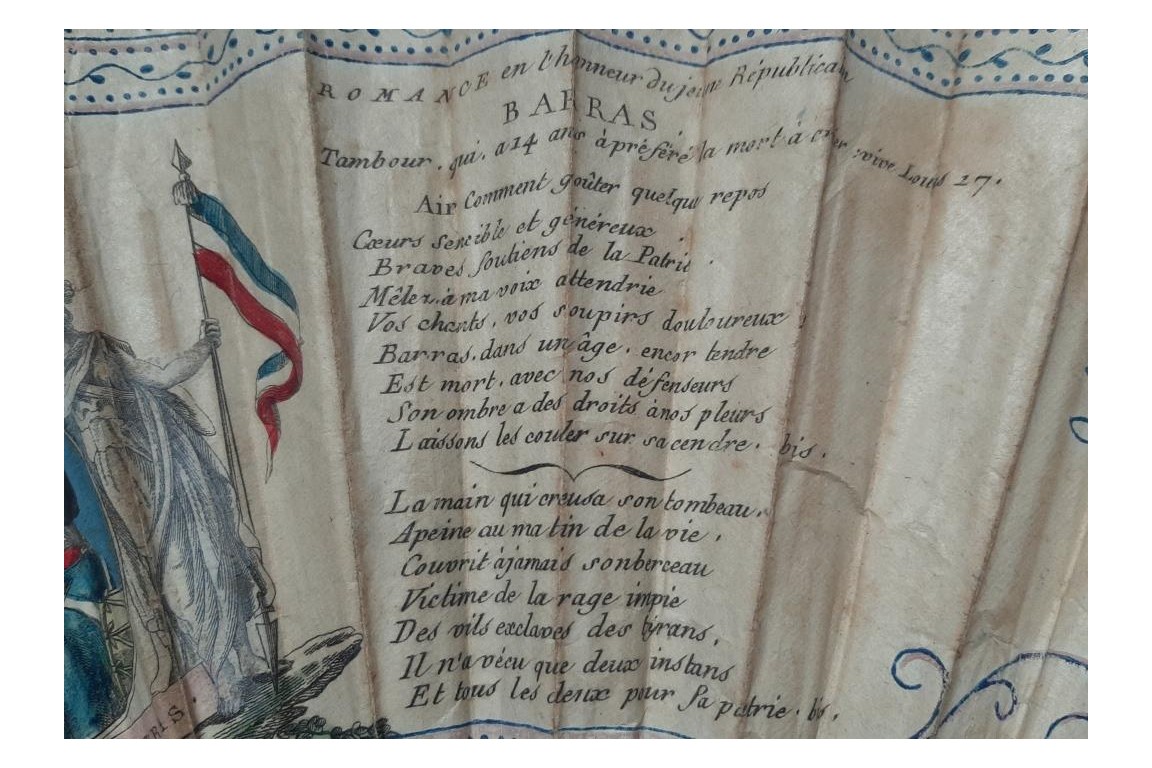 ROMANCE en l'honneur du jeune Républicain
BARRAS
Tambour. qui. a 14 ans à préféré la mort à crier vive Louis 17.
Air Comment goûter quelque repos
Cœurs sensible et généreux
Braves soutiens de la Patrie.
Mêlez. à ma voix attendrie
Vos chants, vos soupirs douloureux;
Barras. dans un âge. encor tendre
Est mort. avec nos défenseurs
Son ombre a des droits à nos pleurs
Laissons les couler sur sa cendre. bis.
La main qui creusa son tombeau,
Apeine au matin de la vie,
Couvrit àjamais son berceau
Victime de la rage impie
Des vils exclaves des tyrans,
Il n'a vécu que deux instans
Et tous les deux pour sa patrie. bis.
RIS.